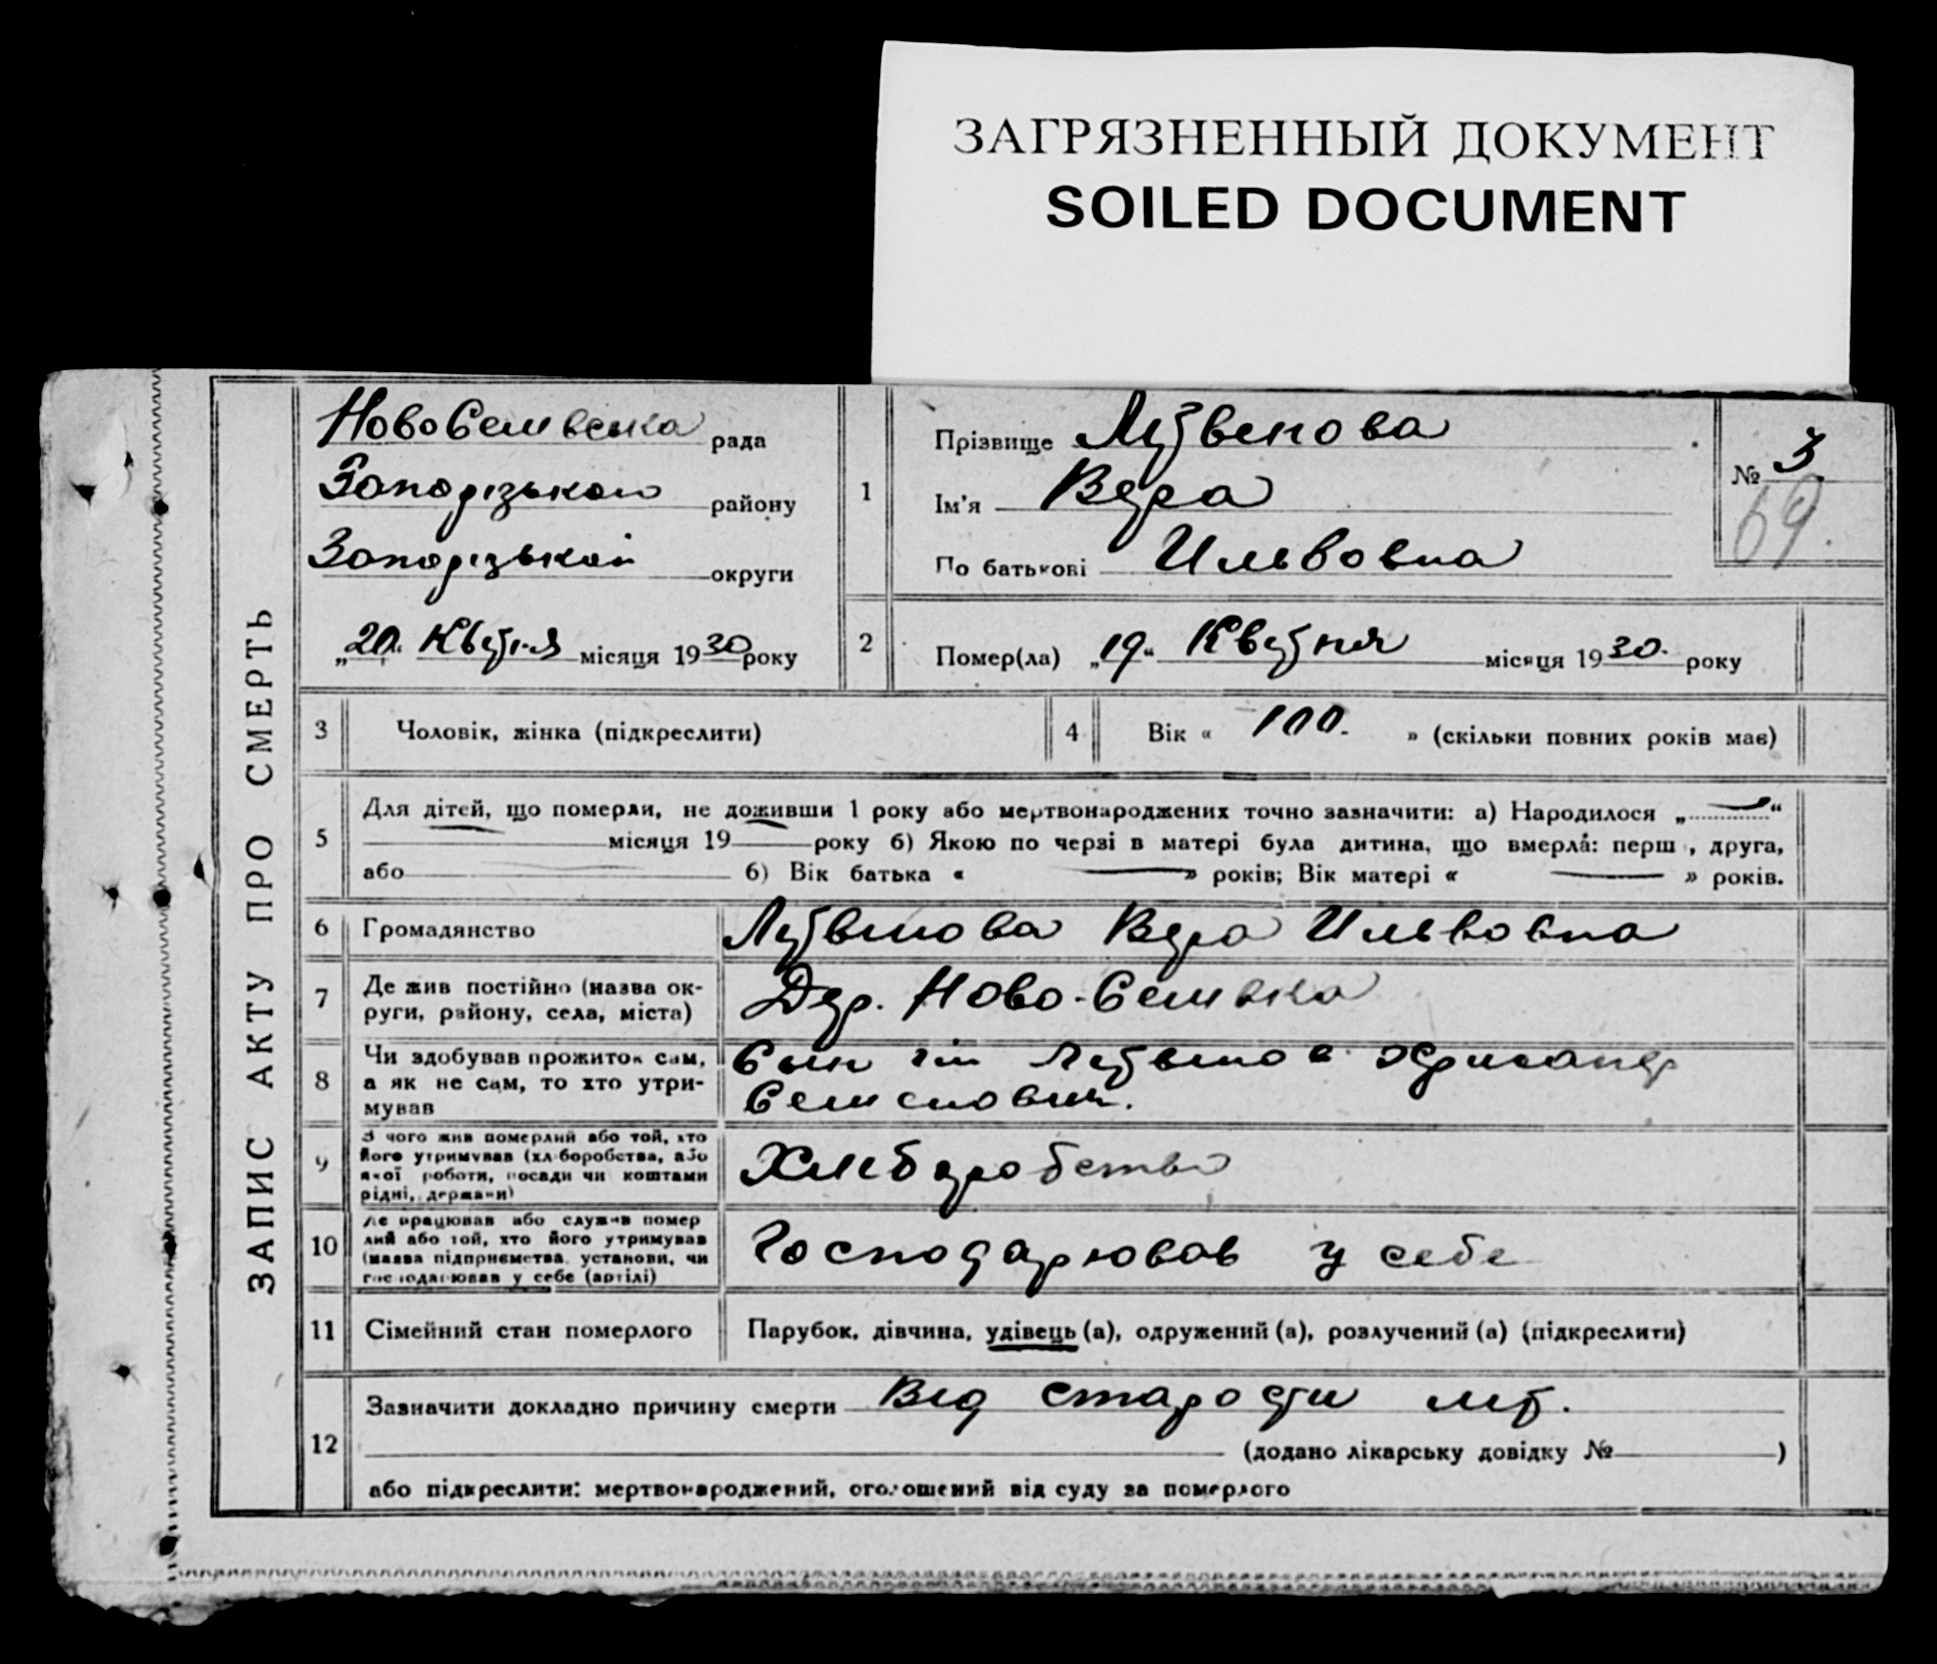 ЗАГРЯЗНЕННЫЙ ДОКУМЕНТ
SOILED DOCUMENT
ЗАПИС АКТУ ПРО СМЕРТЬ
рада
району
округи
„20“ Квітня місяця 1930 року
1
Прізвище
Ім'я Вера
По батькові Ильвовна
№ 3
69.
2
Помер(ла) „19“ Квітня місяця 1930. року
3 Чоловік, жінка (підкреслити)
4 Вік « 100. » (скільки повних років має)
5
Для дітей, що померли, не доживши 1 року або мертвонароджених точно зазначити: а) Народилося „ “
місяця 19 року б) Якою по черзі в матері була дитина, що вмерла: перш , друга,
або б) Вік батька « » років; Вік матері « » років.
6 Громадянство Вера Ильвовна
7
Де жив постійно (назва ок-
руги, району, села, міста)
Дер. Ново-
8
Чи здобував прожиток сам,
а як не сам, то хто утри-
мував
Сын
9
З чого жив померлий або той, хто
його утримував (хліборобства, або
якої роботи, посади чи коштами
рідні, держави)
Хліборобство
10
Де працював або служив помер
лий або той, хто його утримував
(назва підприємства, установи, чи
господарював у себе (артілі)
Господарював у себе
11 Сімейний стан померлого Парубок, дівчина, удівець (а), одружений (а), розлучений (а) (підкреслити)
12
Зазначити докладно причину смерти Від старости літ.
(додано лікарську довідку № )
або підкреслити: мертвонароджений, оголошений від суду за померлого